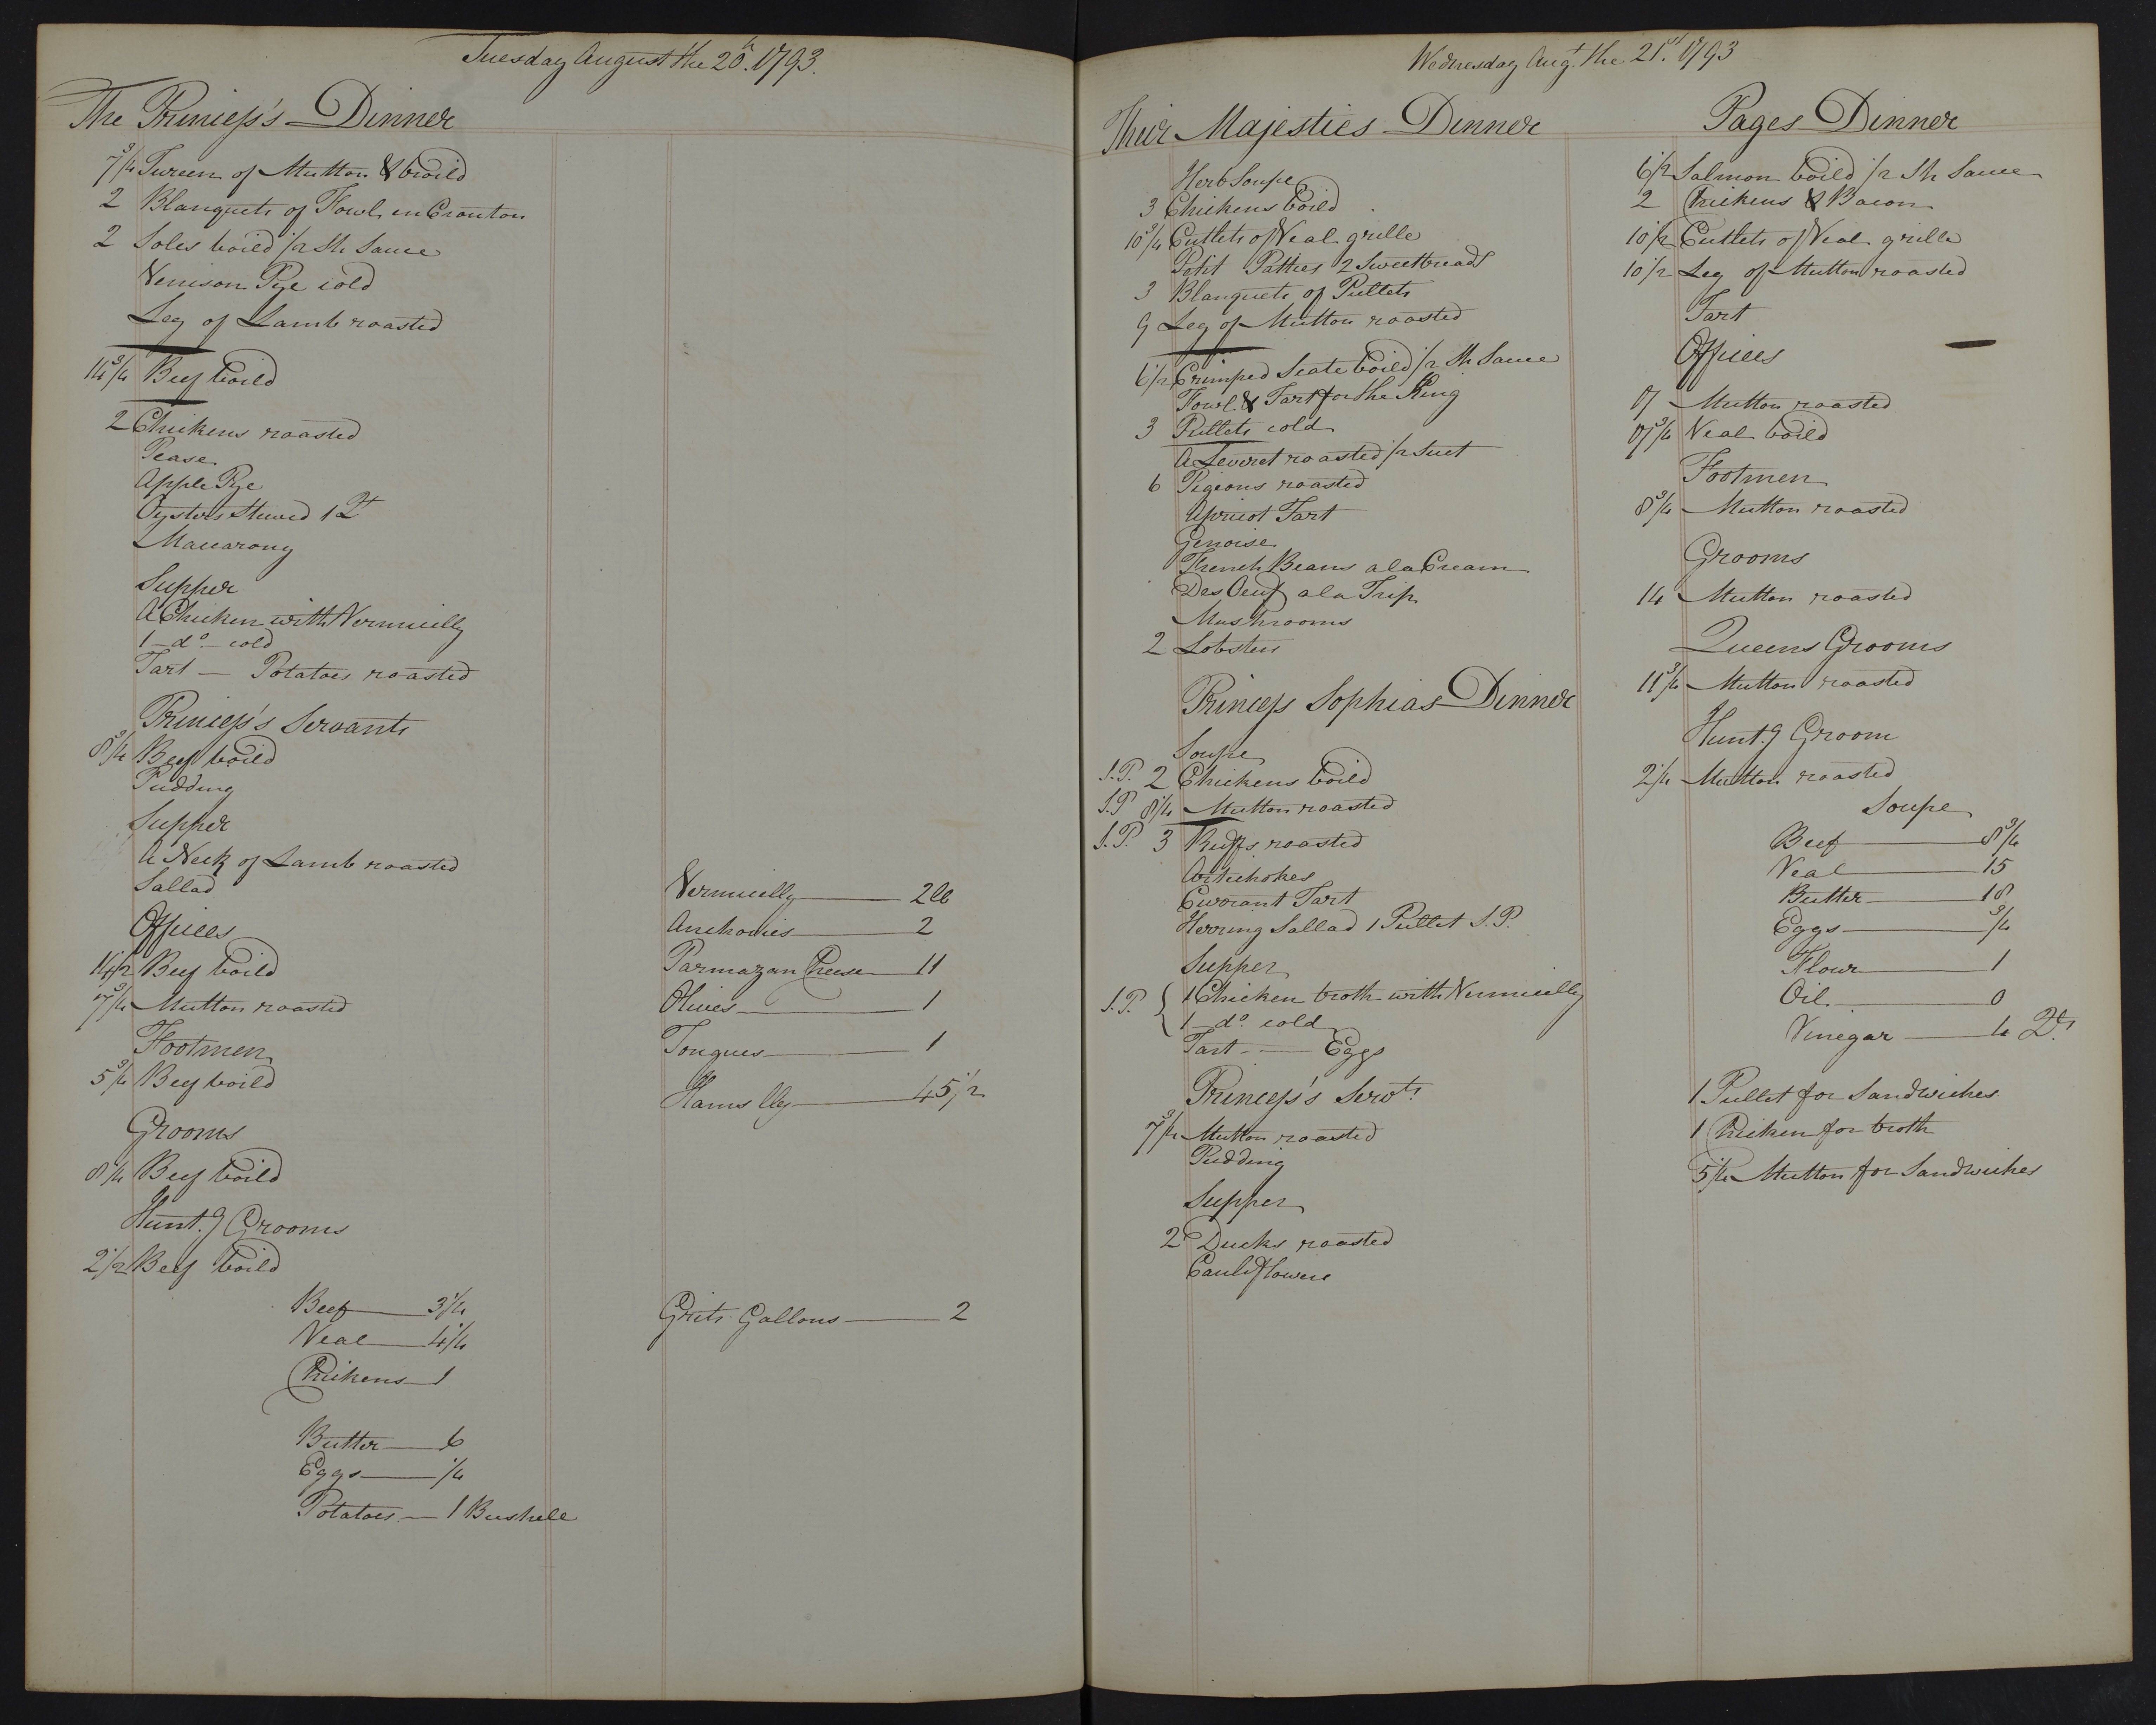 Tuesday August the 20th. 1793.
The Princess's Dinner
7 3/4 Tureen of Mutton & broild
2 Blanquets of Fowl en Crouton
2 Soles boild 1/2 Sh Sauce
Venison Pye cold
Leg of Lamb roasted
14 3/4 Beef boild
2 Chickens roasted
Pease
Apple Pye
Oysters Stewed 1 Qt
Maccarony
Supper
A Chicken with Vermicilly
1 - do - cold
Tart — Potatoes roasted
Princess's Servants
8 3/4 Beef boild
Pudding
Supper
A Neck of Lamb roasted
Sallad
Offices
14 1/2 Beef boild
7 3/4 Mutton roasted
Footmen
5 3/4 Beef boild
Grooms
8 1/4 Beef boild
Hunt.g Grooms
2 1/2 Beef boild
Beef — 3 1/4
Veal — 4 1/4
Chickens — 1
Butter — 6
Eggs — 1/4
Potatoes — 1 Bushell
Vermicilly — 2 lb
Anchovies — 2
Parmazan Cheese — 11
Olives — 1
Tongues — 1
Hams Wg — 45 1/2
Grits Gallons — 2
Wednesday Augt. the 21st. 1793
Their Majesties Dinner
Herb Soupe
3 Chickens boild
10 3/4 Cutlets of Veal grille
Petit Patties 2 Sweetbreads
3 Blanquets of Pullets
9 Leg of Mutton roasted
6 1/2 Crimped Scate boild 1/2 Sh Sauce
Fowl & Tart for the King
3 Pullets cold
A Leveret roasted 1/2 Suet
6 Pigeons roasted
Apricot Tart
Genoise
French Beans a la Cream
Des Oeuf a la Trip
Mushrooms
2 Lobsters
Princess Sophias Dinner
Soupe
S.P. 2 Chickens boild
S.P 8 1/4 Mutton roasted
S.P. 3 Ruffs roasted
Artichokes
Currant Tart
Herring Sallad 1 Pullet S.P.
Supper
S.P. { 1 Chicken broth with Vermicilly
1 - do. cold
Tart — Eggs
Princess's Servts.
7 3/4 Mutton roasted
Pudding
Supper
2 Ducks roasted
Cauliflowers
Pages Dinner
6 1/2 Salmon boild 1/2 Sh Sauce
2 Chickens & Bacon
10 1/2 Cutlets of Veal grille
10 1/2 Leg of Mutton roasted
Tart
Offices —
Mutton roasted
Veal boild
Footmen
8 3/4 Mutton roasted
Grooms
14 Mutton roasted
Queens Grooms
11 3/4 Mutton roasted
Hunt.g Groom
2 1/4 Mutton roasted
Soupe
Beef — 8 3/4
Veal — 15
Butter — 18
Eggs — 3/4
Flour — 1
Oil. — 0
Vinegar — 4 Qts.
1 Pullet for Sandwiches
1 Chicken for broth
5 1/4 Mutton for Sandwiches